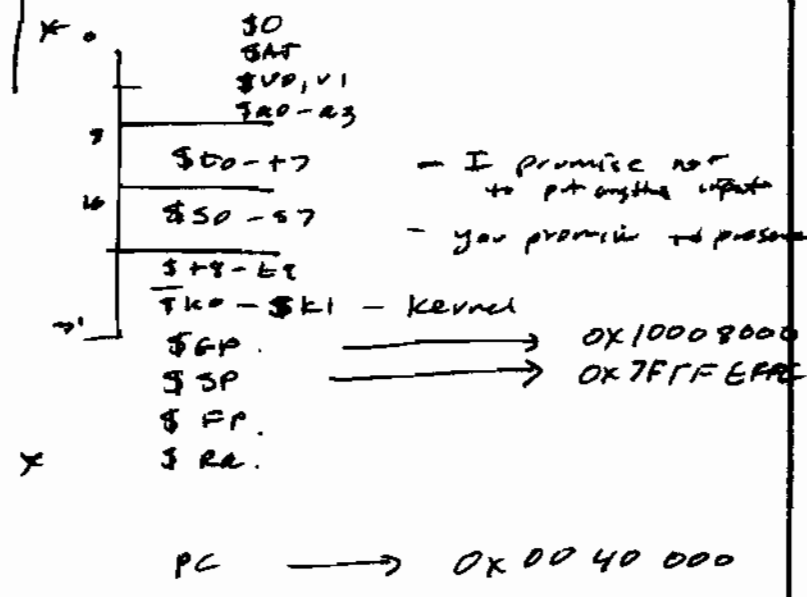 0 $0
$AT
$V0, v1
$a0-a3
8
$t0-t7 - I promise not
to put anything import
16
$S0-s7 - you promise to
$t8-t9
$k0-$k1 - kernel
$GP. → 0x10008000
$SP → 0x7FFFEFFC
$FP.
$Ra.
PC → 0x0040 000